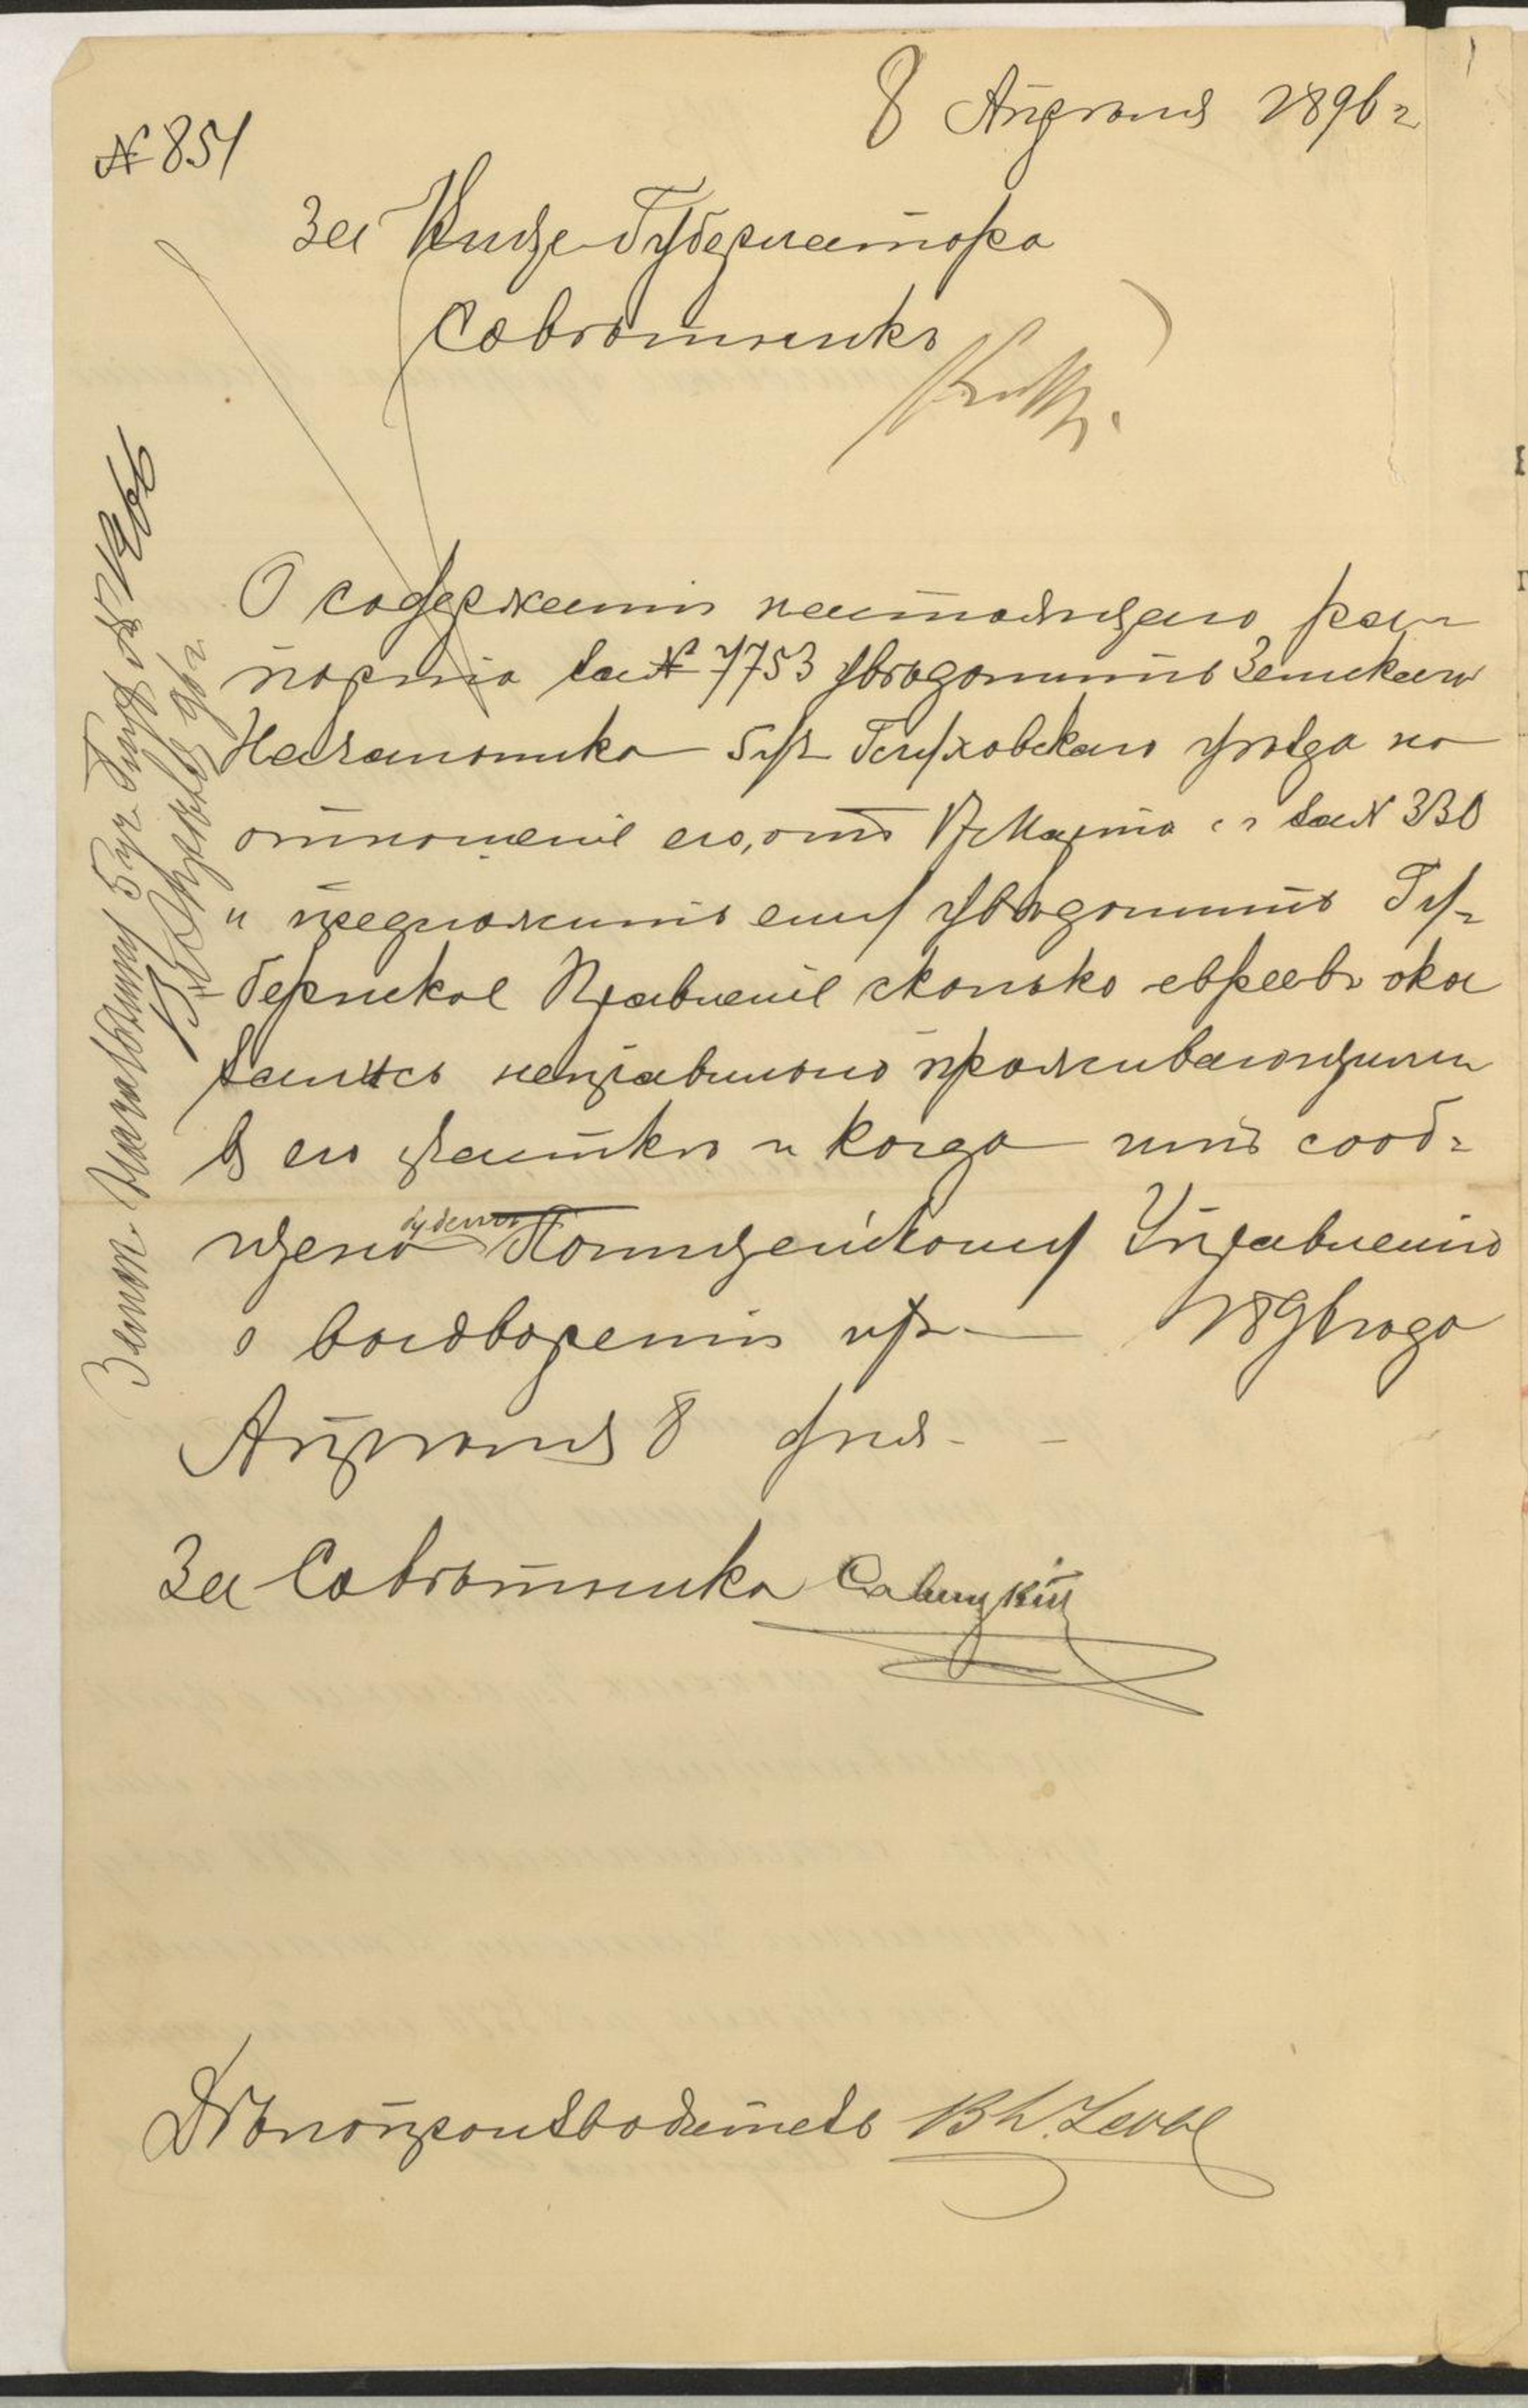 8 Апрѣля 1896 г
№ 851
За Вице-Губернатора
Совѣтникъ
О содержаніи настоящаго ра-
порта за № 7753 увѣдомить Земскаго
Начальника 5 уч Глуховскаго уѣзда на
отношеніе его, отъ 17 Марта с г за № 330
и предложить ему увѣдомить Гу-
бернское Правленіе сколько евреевъ ока
зались неправильно проживающими
въ его участкѣ и когда имъ сооб-
щено будетъ Полицейскому Управленію
о выдвореніи ихъ 1896 года
Апрѣля 8 дня
За Совѣтника Савицкій
Дѣлопроизводитель
Земск. Начальнику 5 уч Глух